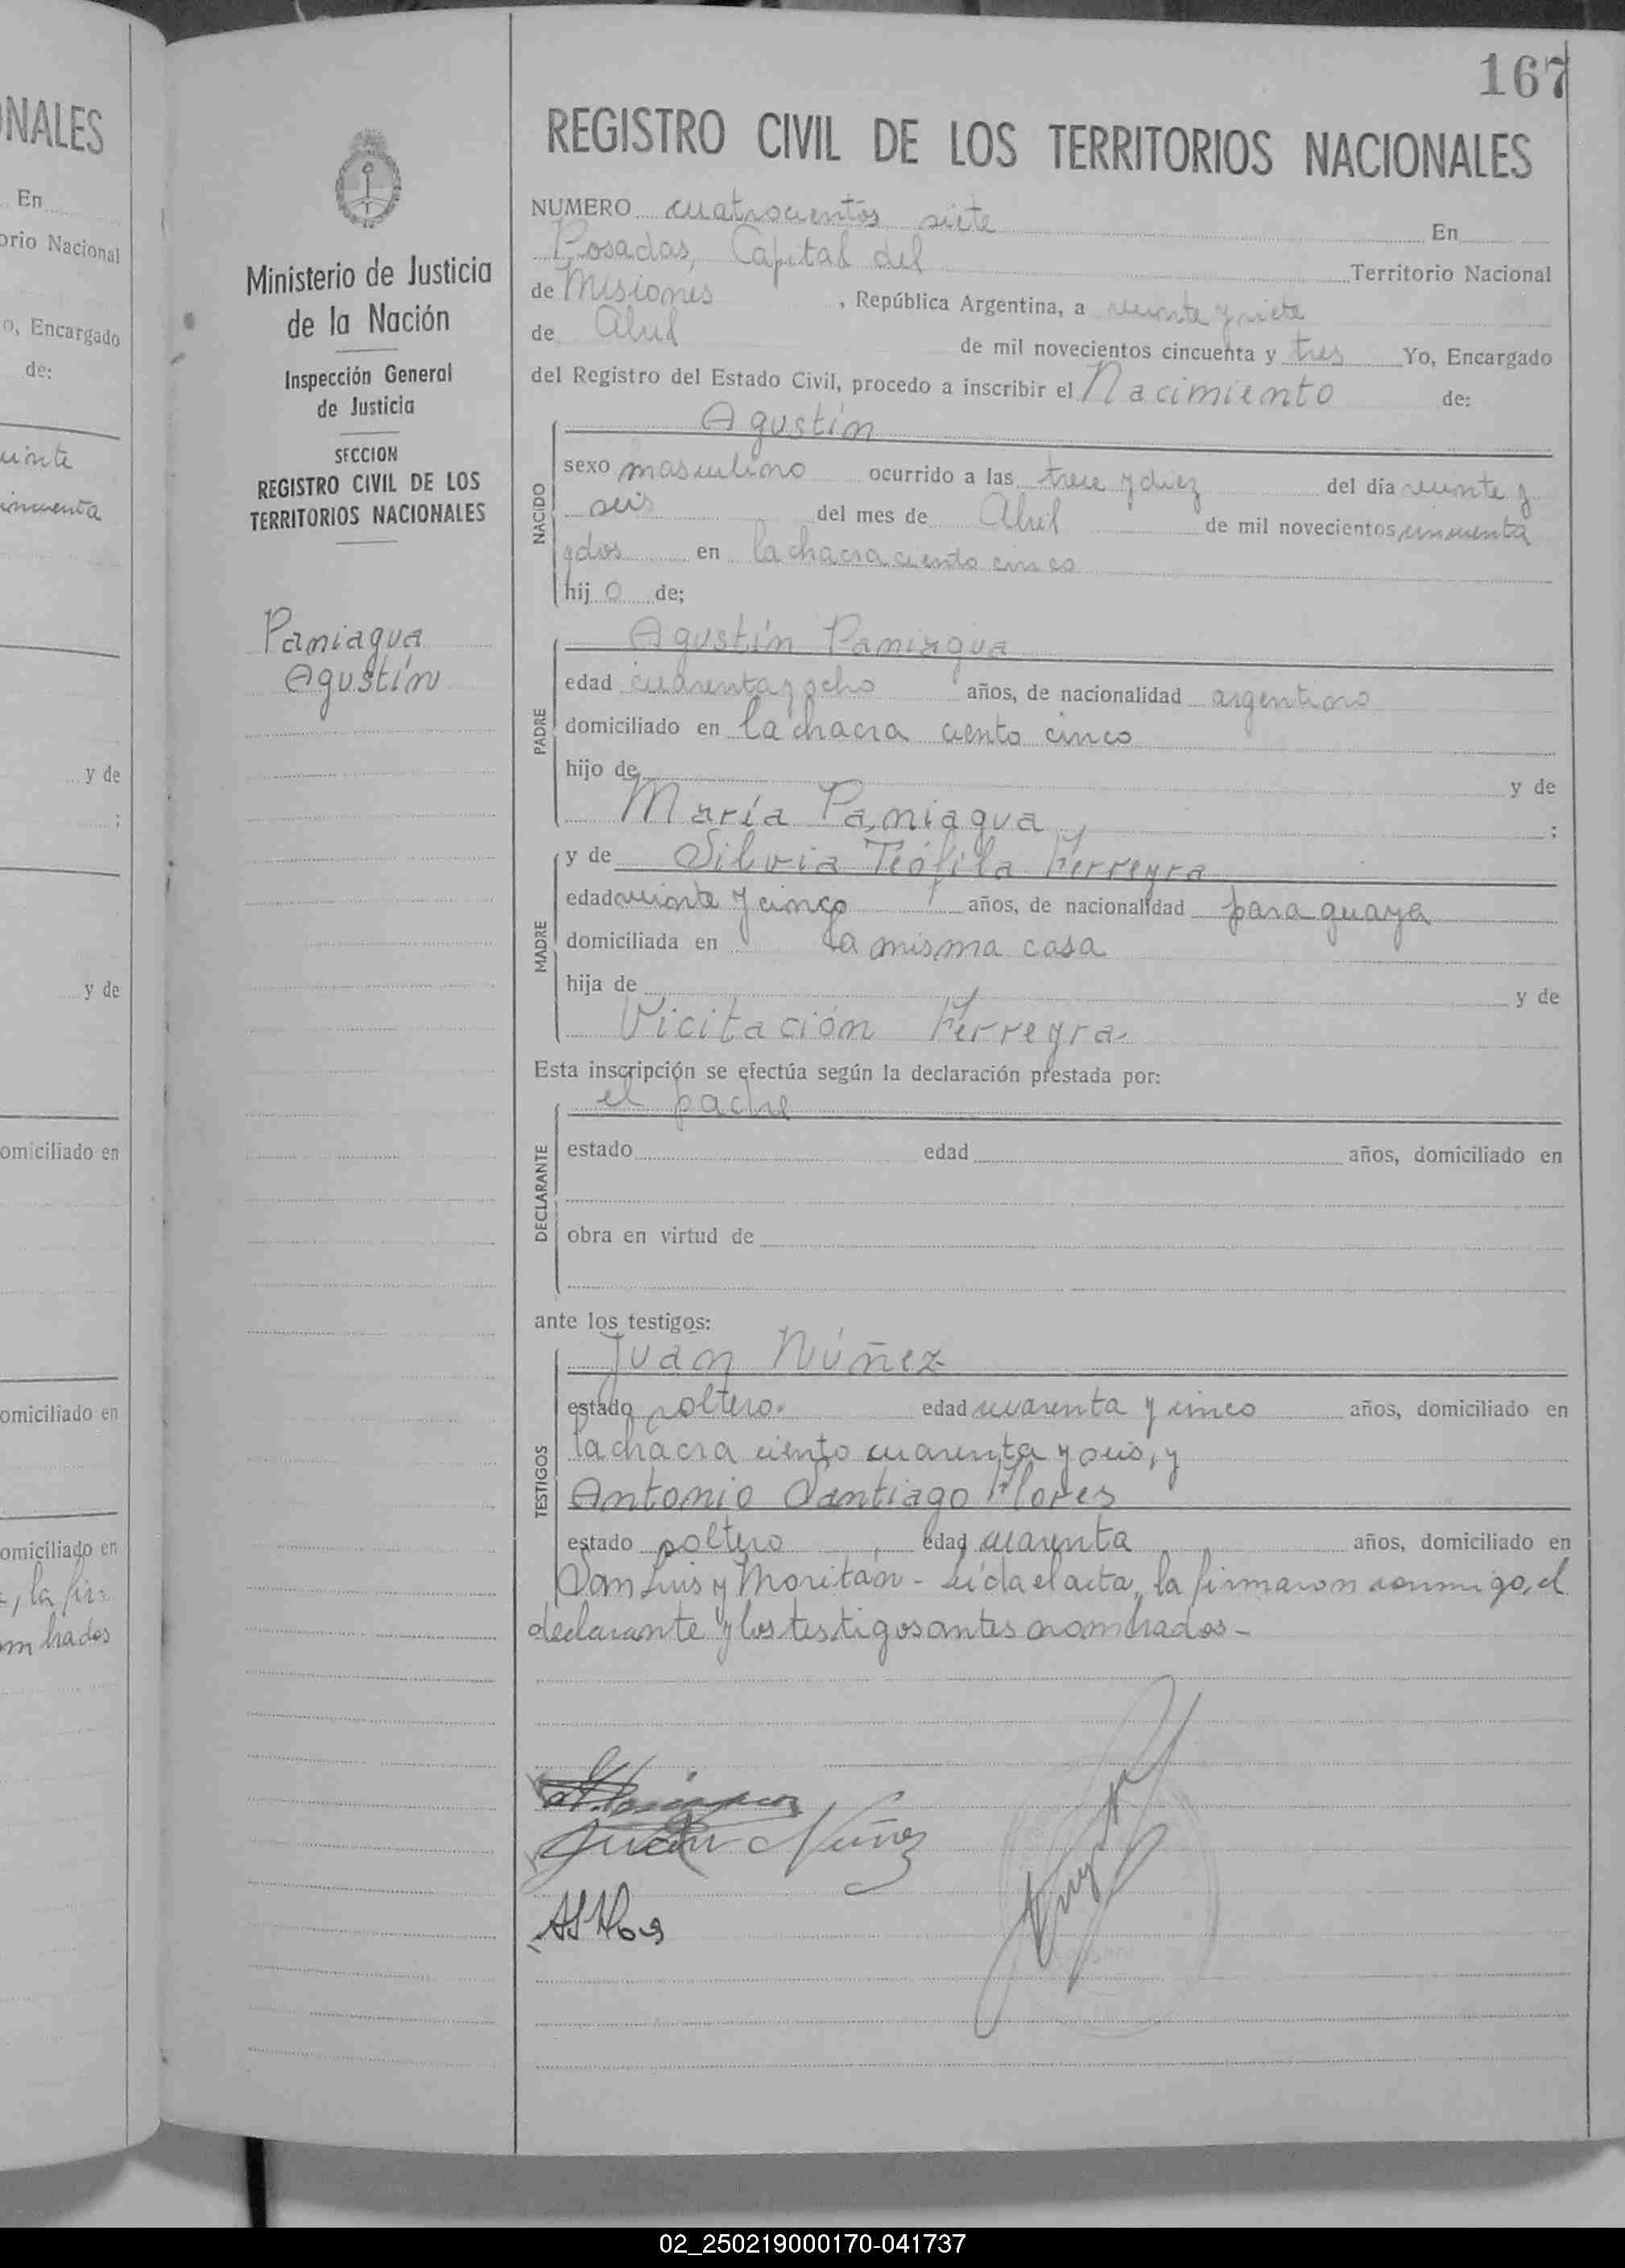 167
NALES
En
orio Nacional
o, Encargado
de:
inte
incuenta
y de
;
y de
omiciliado en
omiciliado en
omiciliado en
, la fir=
m brados
Ministerio de Justicia
de la Nación
Inspección General
de Justicia
SECCION
REGISTRO CIVIL DE LOS
TERRITORIOS NACIONALES
Paniagua
Agustín
REGISTRO CIVIL DE LOS TERRITORIOS NACIONALES
NUMERO cuatrocientos siete En
Posadas, Capital del Territorio Nacional
de Misiones , República Argentina, a veinte y siete
de Abril de mil novecientos cincuenta y tres Yo, Encargado
del Registro del Estado Civil, procedo a inscribir el Nacimiento de:
Agustín
NACIDO
sexo masculino ocurrido a las trece y diez del día veinte y
seis del mes de Abril de mil novecientos cincuenta
y dos en la chacra ciento cinco
hij o de;
Agustín Paniagua
PADRE
edad cuarenta y ocho años, de nacionalidad argentino
domiciliado en la chacra ciento cinco
hijo de y de
María Paniagua ;
MADRE
y de Silvia Teófila Ferreyra
edad veinte y cinco años, de nacionalidad paraguaya
domiciliada en la misma casa
hija de y de
Vicitación Ferreyra
Esta inscripción se efectúa según la declaración prestada por:
el padre
DECLARANTE
estado edad años, domiciliado en
obra en virtud de
ante los testigos:
TESTIGOS
Juan Núñez
estado soltero. edad cuarenta y cinco años, domiciliado en
la chacra ciento cuarenta y seis, y
Antonio Santiago Flores
estado soltero edad cuarenta años, domiciliado en
San Luis y Moritán - Leída el acta, la firmaron conmigo, el
declarante y los testigos antes nombrados -
Juan Nuñez
02_250219000170-041737